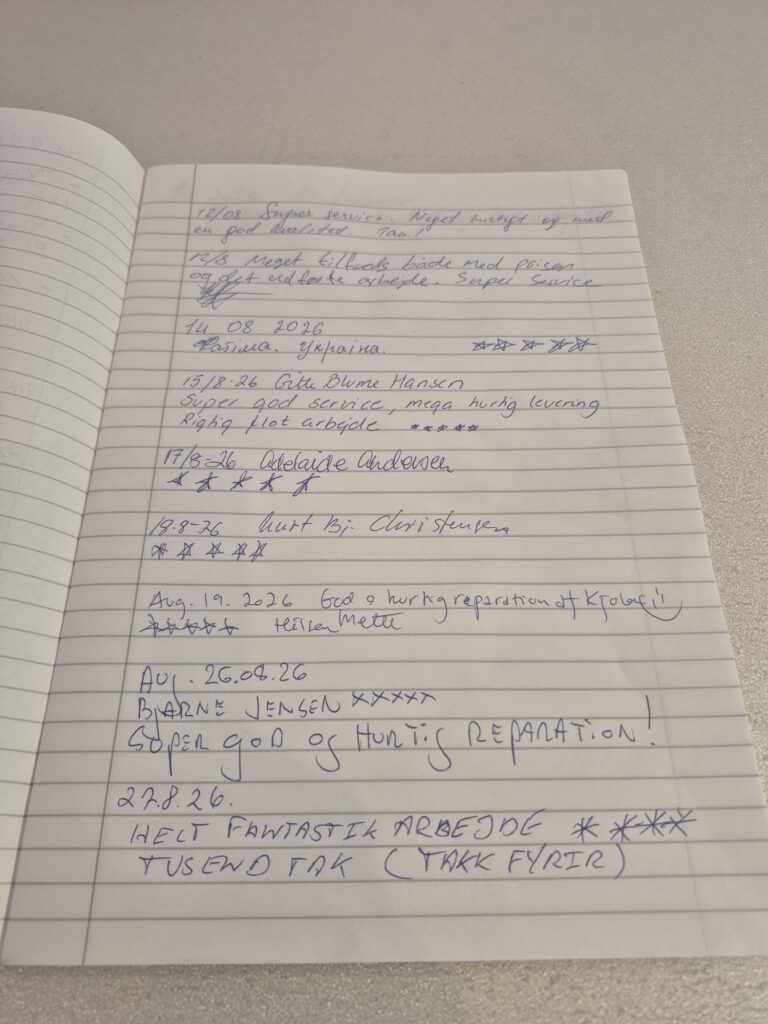 12/08 Super service. Meget hurtigt og med
en god kvalitet. Tak!
12/8 Meget tilfreds både med prisen
og det udførte arbejde. Super Service
14 08 2026
Фатіма. Україна. ☆☆☆☆☆
15/8-26 Gitte Blume Hansen
Super god service, mega hurtig levering
Rigtig flot arbejde *****
17/8-26 Adelaide Andersen
★ ★ ★ ★ ★
18-8-26 Kurt Bj. Christensen
★ ★ ★ ★ ★
Aug. 19. 2026 God & hurtig reparation af Kjolen
☆☆☆☆☆ Hilsen Mette
Aug. 26.08.26
BJARNE JENSEN XXXXX
SUPER GOD OG HURTIG REPARATION!
27.8.26.
HELT FANTASTIK ARBEJDE * ****
TUSEND TAK (TAKK FYRIR)